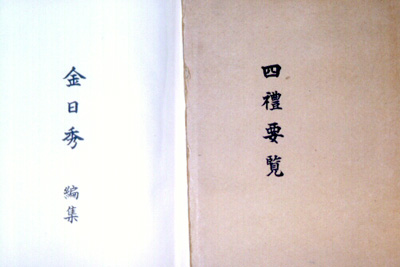 四禮要覧
金日秀
編集